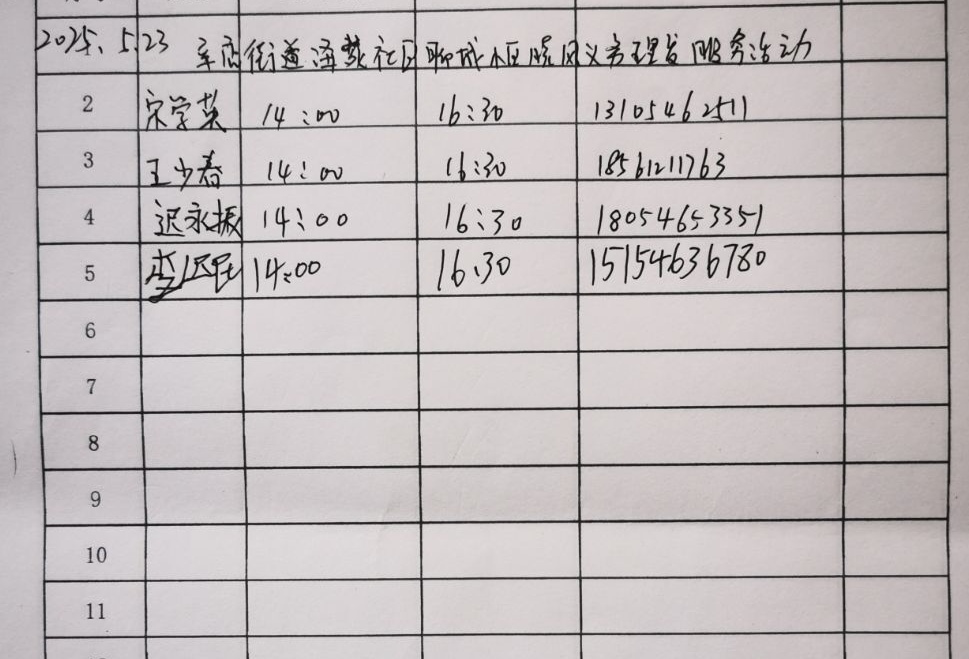 2025.5.23 辛店街道泽慧社区聊城小区晚风义务理发服务活动
2 宋学英 14:00 16:30 13105462511
3 王少春 14:00 16:30 18561211763
4 迟永振 14:00 16:30 18054653351
5 李 14:00 16.30 15154636780
6
7
8
9
10
11